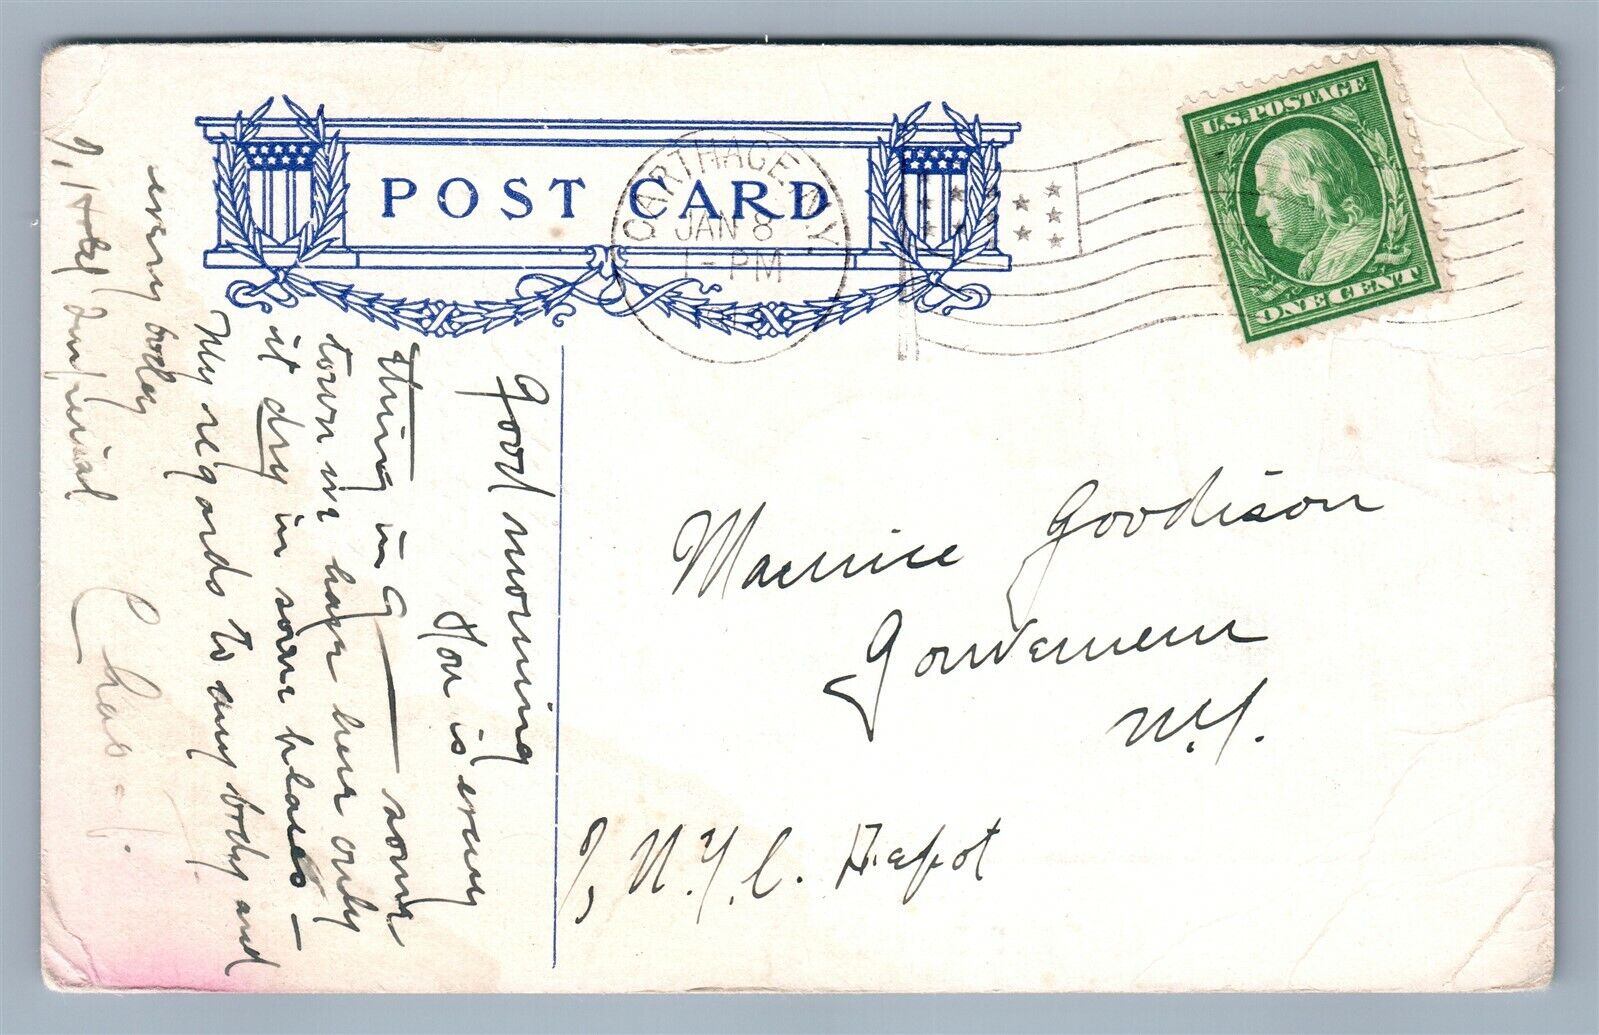 POST CARD
CARTHAGE N.Y.
JAN 8
1-PM
U.S. POSTAGE
ONE CENT
Good morning
How is every
thing in G — some
town we have here only
it dry in some places —
My regards to any body and
every body
Chas.
Hotel Imperial
Maurice Goodison
Gouverneur
N.Y.
N.Y.C. Depot